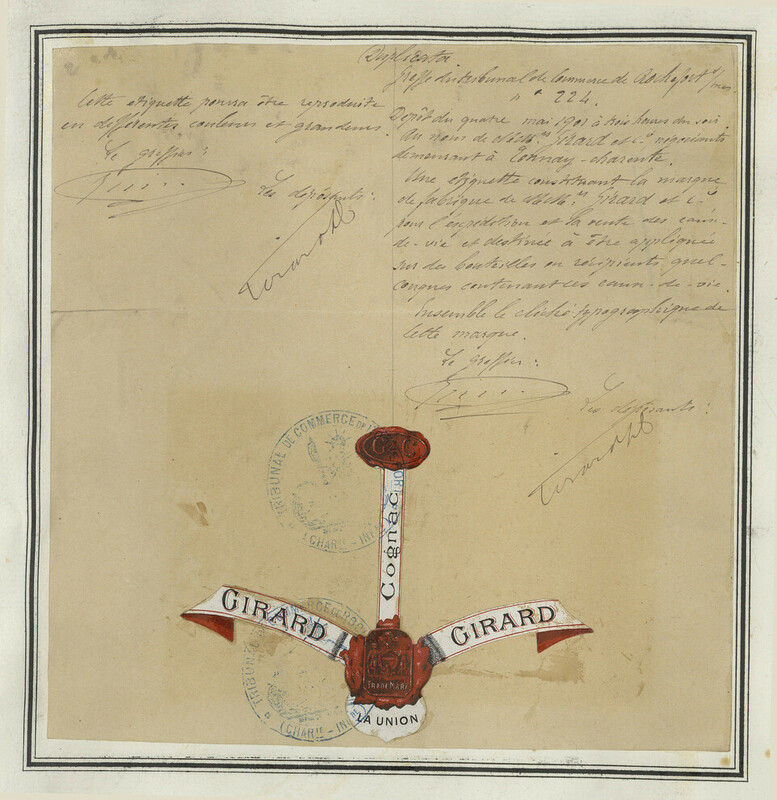 Duplicata
Greffe du tribunal de Commerce de Rochefort s/mer
N° 224.
Dépôt du quatre mai 1901 à trois heures du soir
Au nom de MM. Girard et Cie négociants
demeurant à Tonnay-charente.
Une étiquette constituant la marque
de fabrique de MM. Girard et Cie
pour l'expédition et la vente des eaux-
de-vie et destinée à être appliquée
sur des bouteilles ou récipients quel-
conques contenant ces eaux-de-vie.
Ensemble le cliché typographique de
cette marque.
Le greffier:
Les déposants:
Cette étiquette pourra être reproduite
en différentes couleurs et grandeurs.
Le greffier:
Les déposants:
TRIBUNAL DE COMMERCE DE
(CHARTE - INF
G & C
Cognac
GIRARD
GIRARD
TRADE MARK
LA UNION
TRIBUNAL
(CHARTE - INF